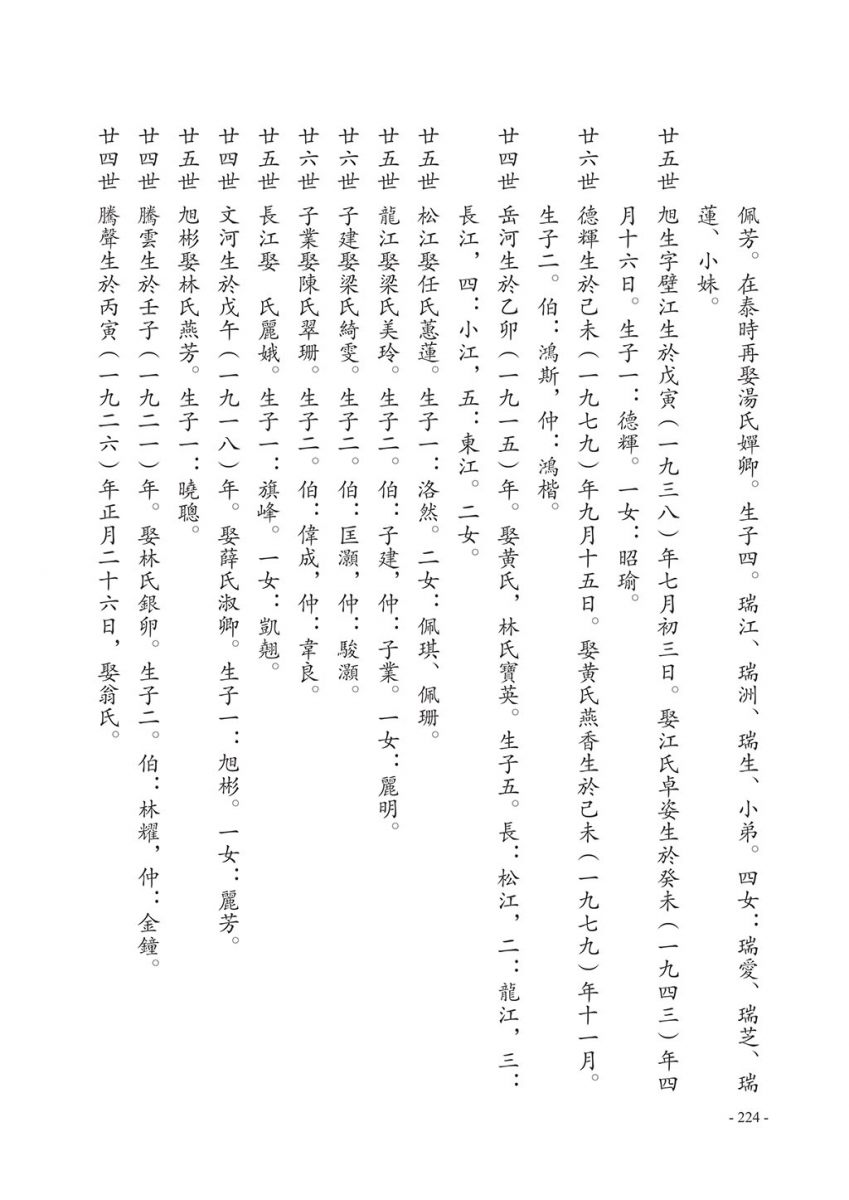 佩芳。在泰時再娶湯氏嬋卿。生子四。瑞江、瑞洲、瑞生、小弟。四女：瑞愛、瑞芝、瑞
蓮、小妹。
廿五世 旭生字壁江生於戊寅（一九三八）年七月初三日。娶江氏卓姿生於癸未（一九四三）年四
月十六日。生子一：德輝。一女：昭瑜。
廿六世 德輝生於己未（一九七九）年九月十五日。娶黃氏燕香生於己未（一九七九）年十一月。
生子二。伯：鴻斯，仲：鴻楷。
廿四世 岳河生於乙卯（一九一五）年。娶黃氏，林氏寶英。生子五。長：松江，二：龍江，三：
長江，四：小江，五：東江。二女。
廿五世 松江娶任氏蕙蓮。生子一：洛然。二女：佩琪、佩珊。
廿五世 龍江娶梁氏美玲。生子二。伯：子建，仲：子業。一女：麗明。
廿六世 子建娶梁氏綺雯。生子二。伯：匡灝，仲：駿灝。
廿六世 子業娶陳氏翠珊。生子二。伯：偉成，仲：韋良。
廿五世 長江娶　氏麗娥。生子一：旗峰。一女：凱翹。
廿四世 文河生於戊午（一九一八）年。娶薛氏淑卿。生子一：旭彬。一女：麗芳。
廿五世 旭彬娶林氏燕芳。生子一：曉聰。
廿四世 騰雲生於壬子（一九二一）年。娶林氏銀卯。生子二。伯：林耀，仲：金鐘。
廿四世 騰聲生於丙寅（一九二六）年正月二十六日，娶翁氏。
- 224 -